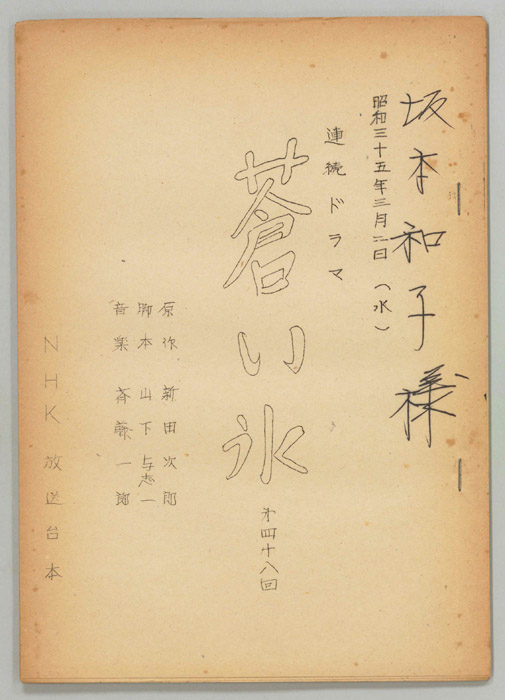 坂本和子様
昭和三十五年三月二日（水）
連続ドラマ
蒼い氷
第四十八回
原作　新田次郎
脚本　山下与志一
音楽　斉藤一郎
NHK放送台本